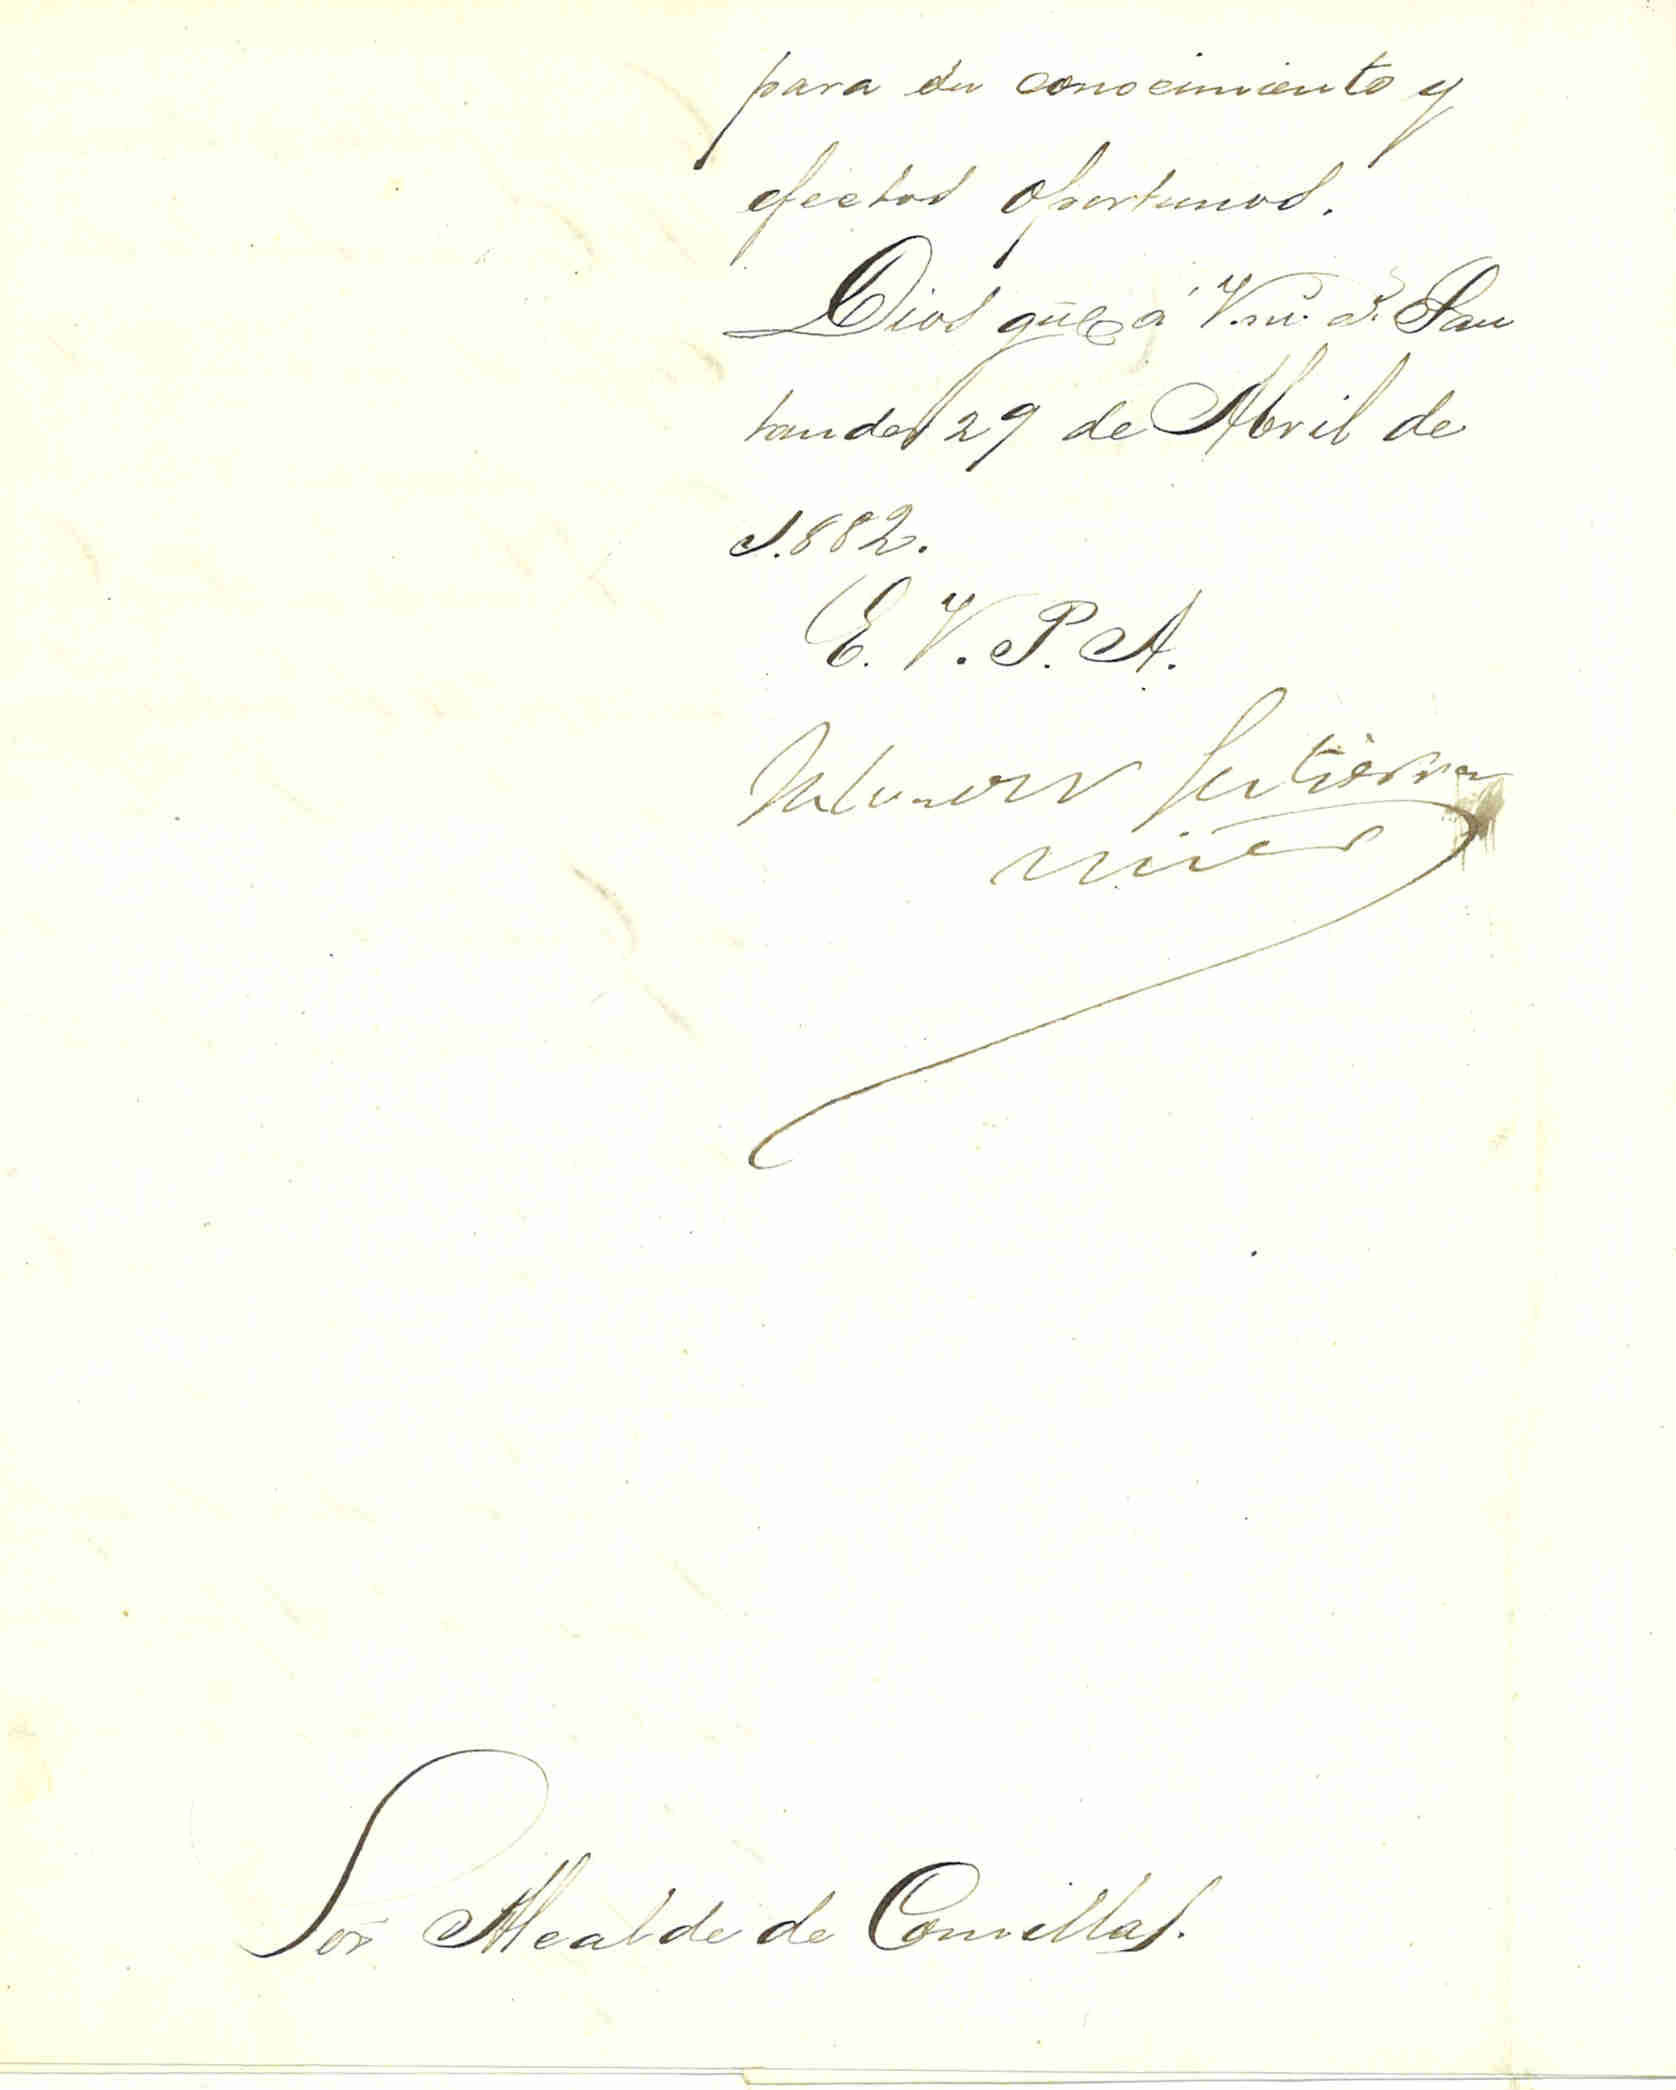 para su conocimiento y
efectos oportunos.
Dios gũe á V. m. s. San
tander 29 de Abril de
1.882.
E. V. P. A.
Gutierrez
Mier
Sor Alcalde de Comillas.